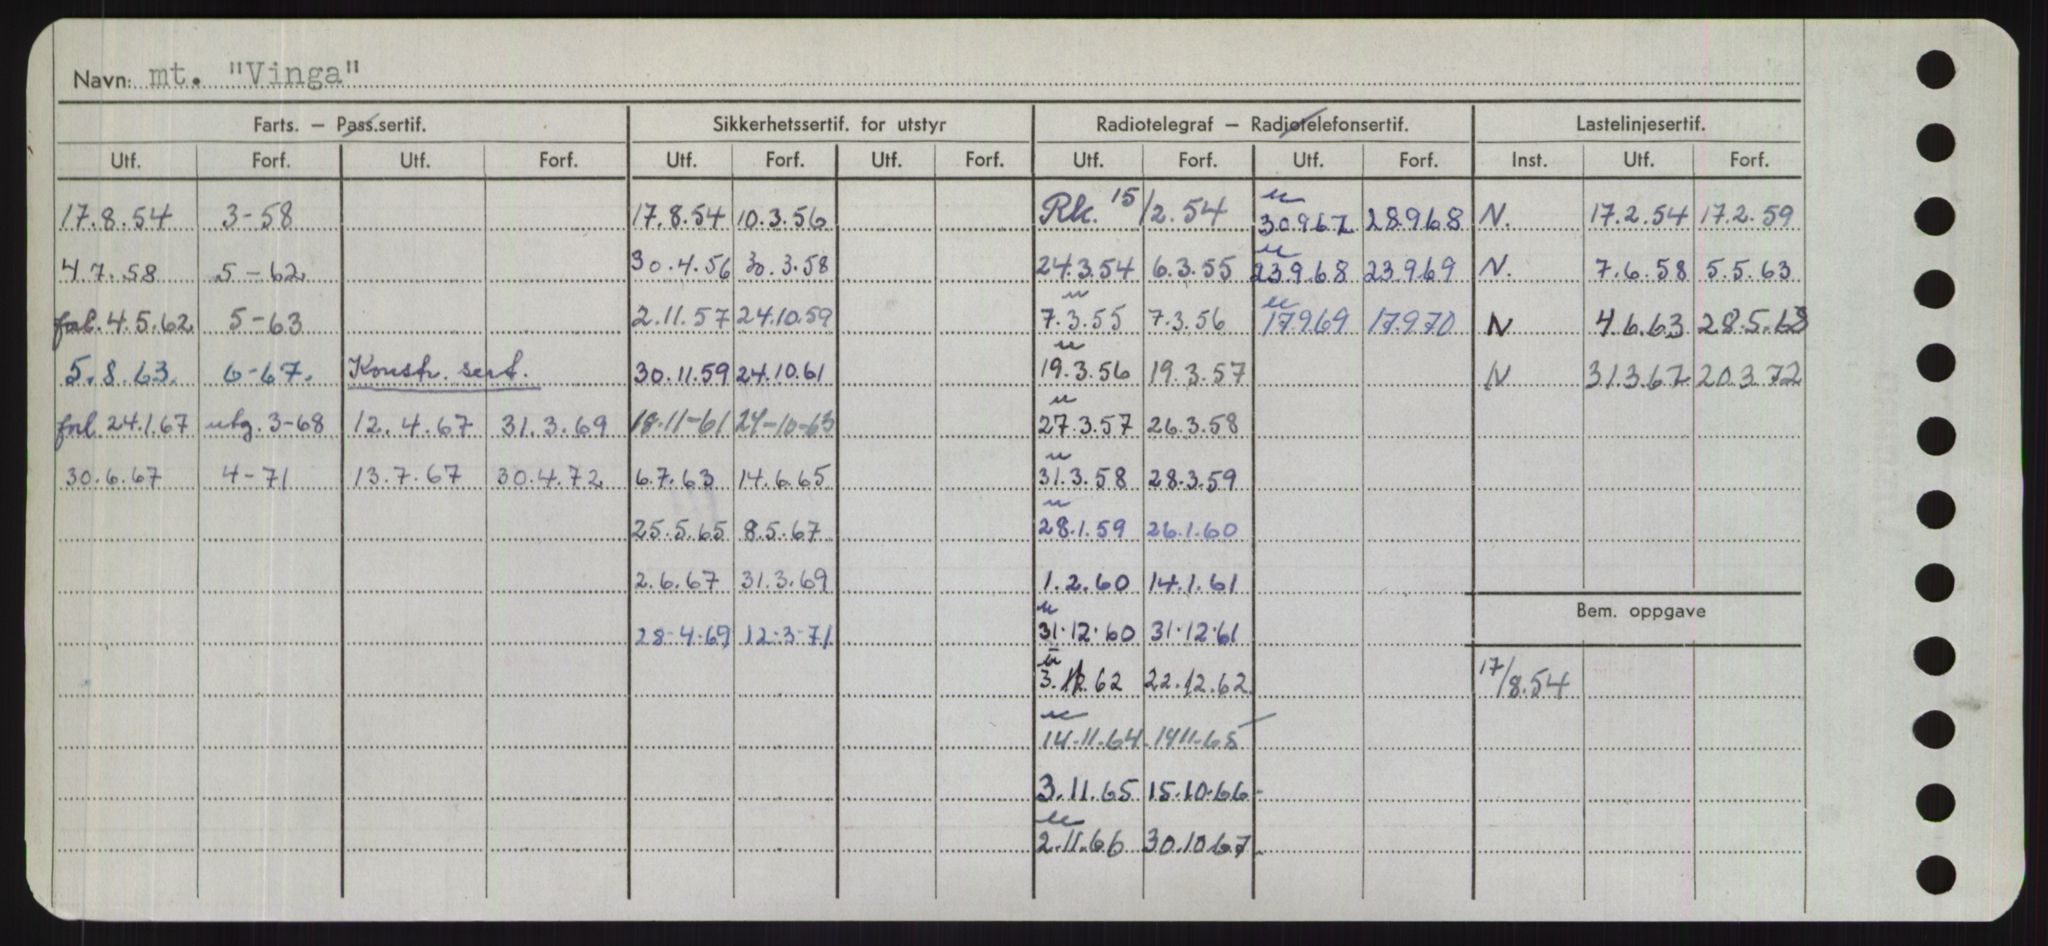 Navn: mt. "Vinga"
Farts. — Pass.sertif. Sikkerhetssertif. for utstyr Radiotelegraf — Radiotelefonsertif. Lastelinjesertif.
Utf. Forf. Utf. Forf. Utf. Forf. Utf. Forf. Utf. Forf. Utf. Forf. Inst. Utf. Forf.
17.8.54 3-58 17.8.54 10.3.56 Rk. 15/2.54 30.9.67 28.9.68 N. 17.2.54 17.2.59
4.7.58 5-62 30.4.56 30.3.58 24.3.54 6.3.55 23.9.68 23.9.69 N. 7.6.58 5.5.63
forl. 4.5.62 5-63 2.11.57 24.10.59 7.3.55 7.3.56 17.9.69 17.9.70 N 4.6.63 28.5.68
5.8.63. 6-67. Konstr. sert. 30.11.59 24.10.61 19.3.56 19.3.57 N 31.3.67 20.3.72
forl. 24.1.67 utg. 3-68 12.4.67 31.3.69 18-11-61 24-10-63 27.3.57 26.3.58
30.6.67 4-71 13.7.67 30.4.72 6.7.63 14.6.65 31.3.58 28.3.59
25.5.65 8.5.67 28.1.59 26.1.60
2.6.67 31.3.69 1.2.60 14.1.61
28-4-69 12-3-71 31.12.60 31.12.61
Bem. oppgave
62 22.12.62 17/8.54
14-11.64 1911-65
3.11.65 15.10.66
2.11.66 30.10.67